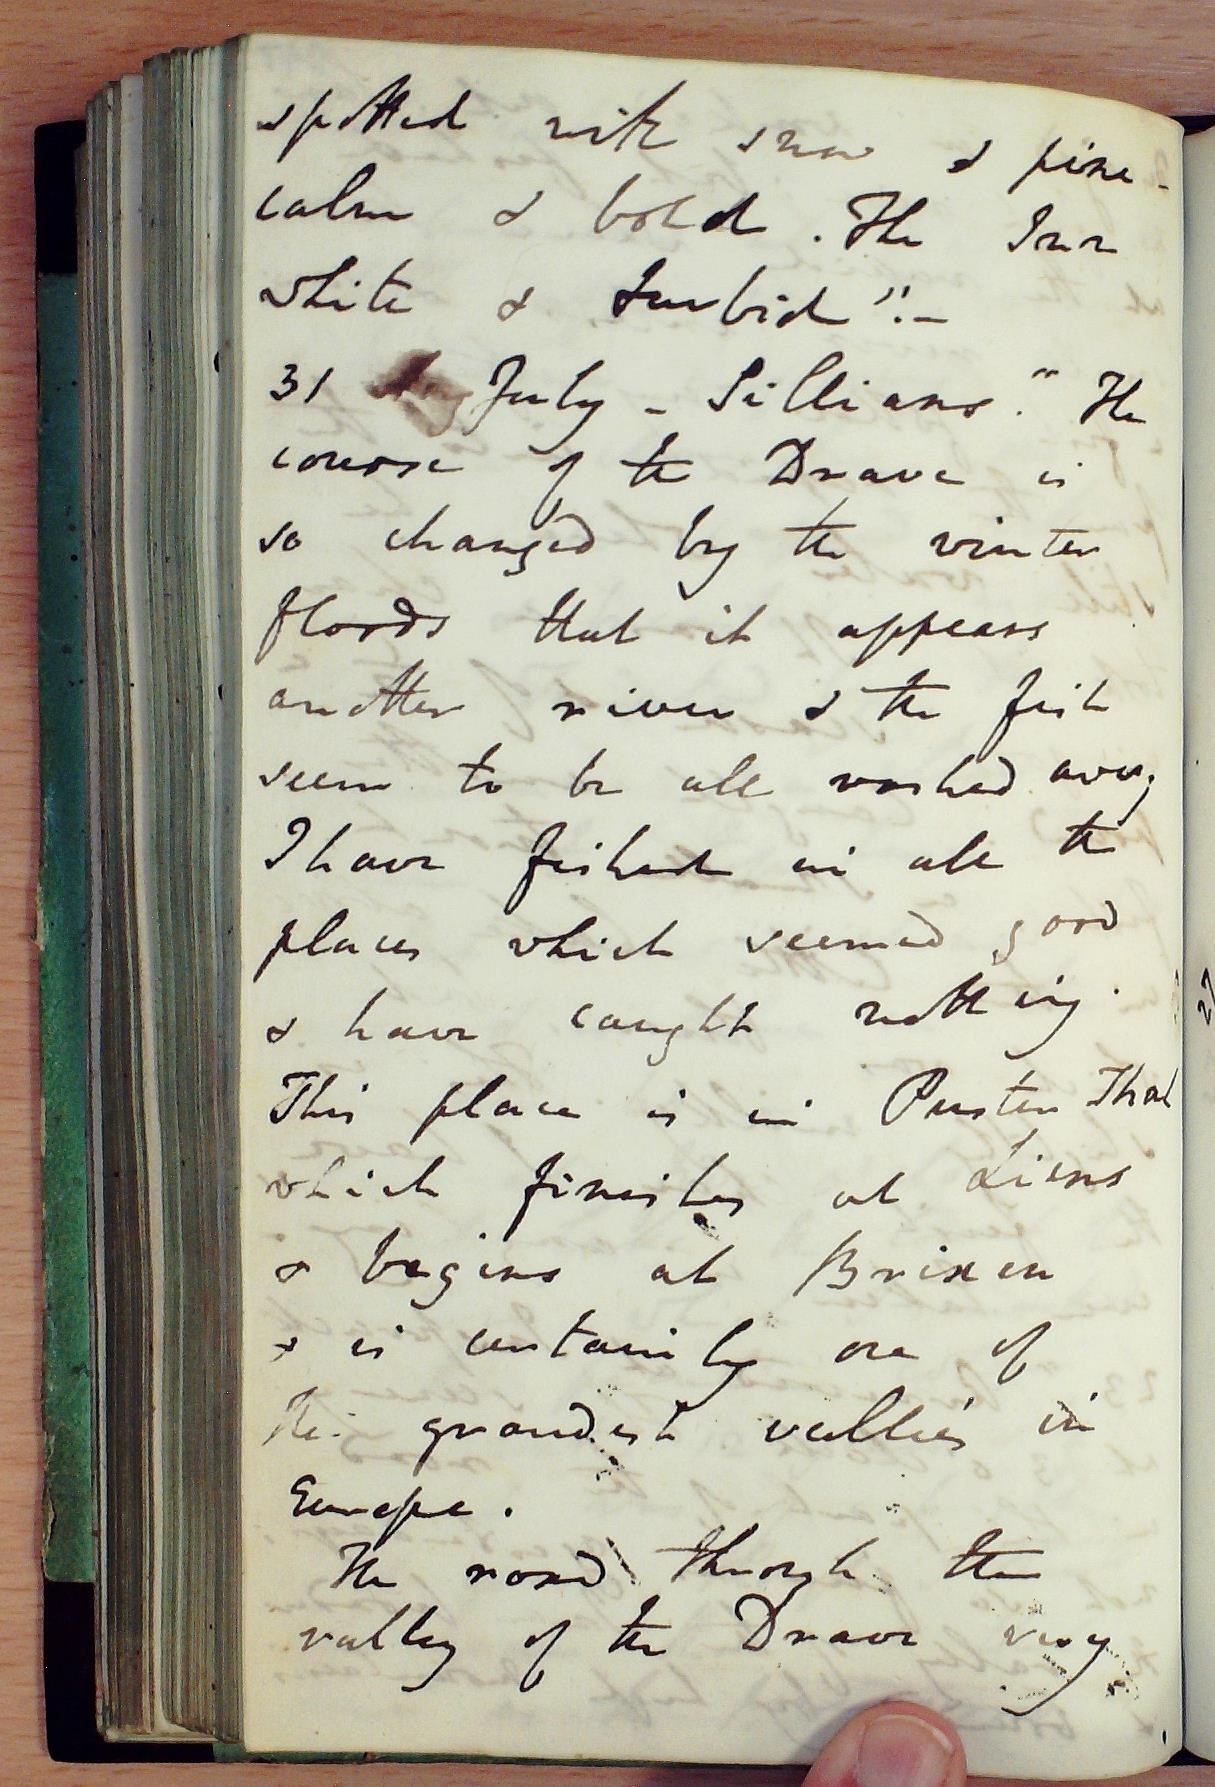 spotted with snow & pine -
calm & bold. The Inn
white & turbid". -
31 July - Sillians. "The
course of the Drave is
so changed by the winter
floods that it appears
another river & the fish
seem to be all washed away
I have fished in all the
places which seemed good
& have caught nothing.
This place is in Puster Thal
which finishes at Liens
& begins at Brixen
& is certainly one of
the grandest vallies in
Europe.
The road through the
valley of the Drave very
27